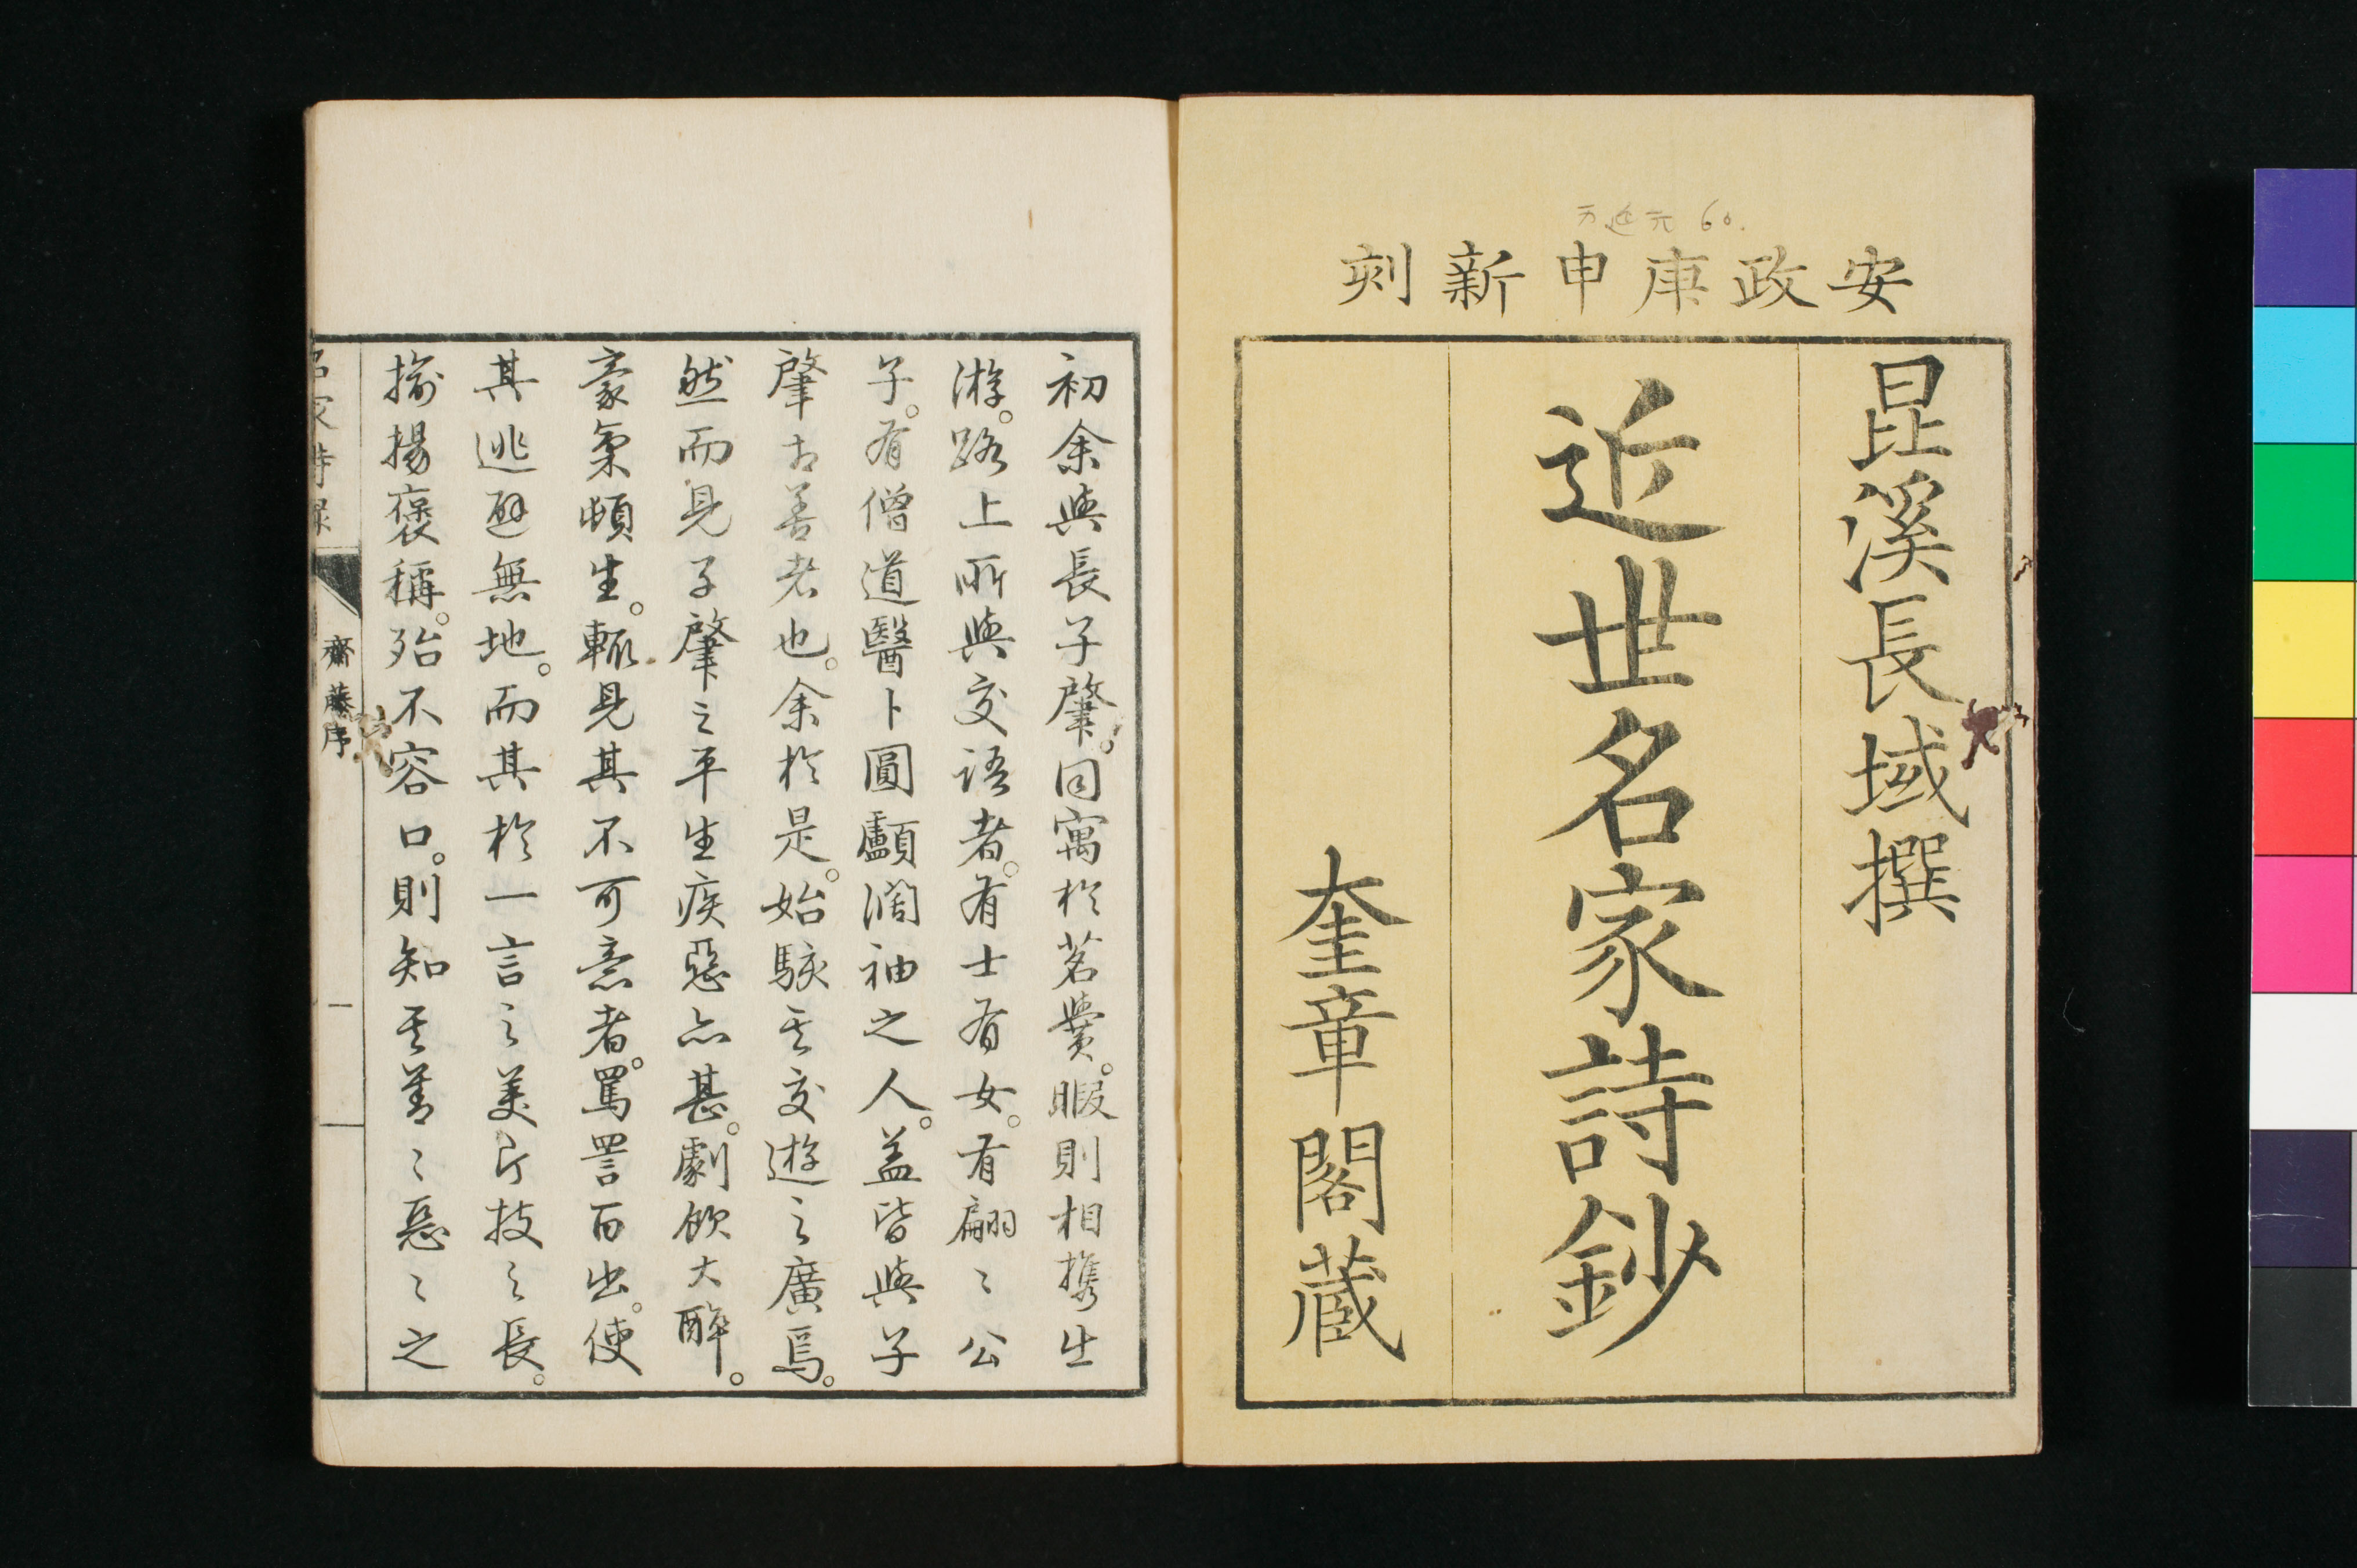 万延元 60.
安政庚申新刻
昆溪長域撰
近世名家詩鈔
奎章閣蔵
初余與長子肇。同寓於茗黌。暇則相携出
游。路上所與交語者。有士有女。有翩〻公
子。有僧道醫卜圓顱濶袖之人。蓋皆與子
肇古善者也。余於是。始駭其交遊之廣焉。
然而見子肇之平生疾惡亦甚。劇飲大醉。
豪氣頓生。輙見其不可意者。罵詈百出。使
其逃避無地。而其於一言之美片技之長。
揄揚褒稱。殆不容口。則知其善〻惡〻之
名家詩録
齋藤序
一